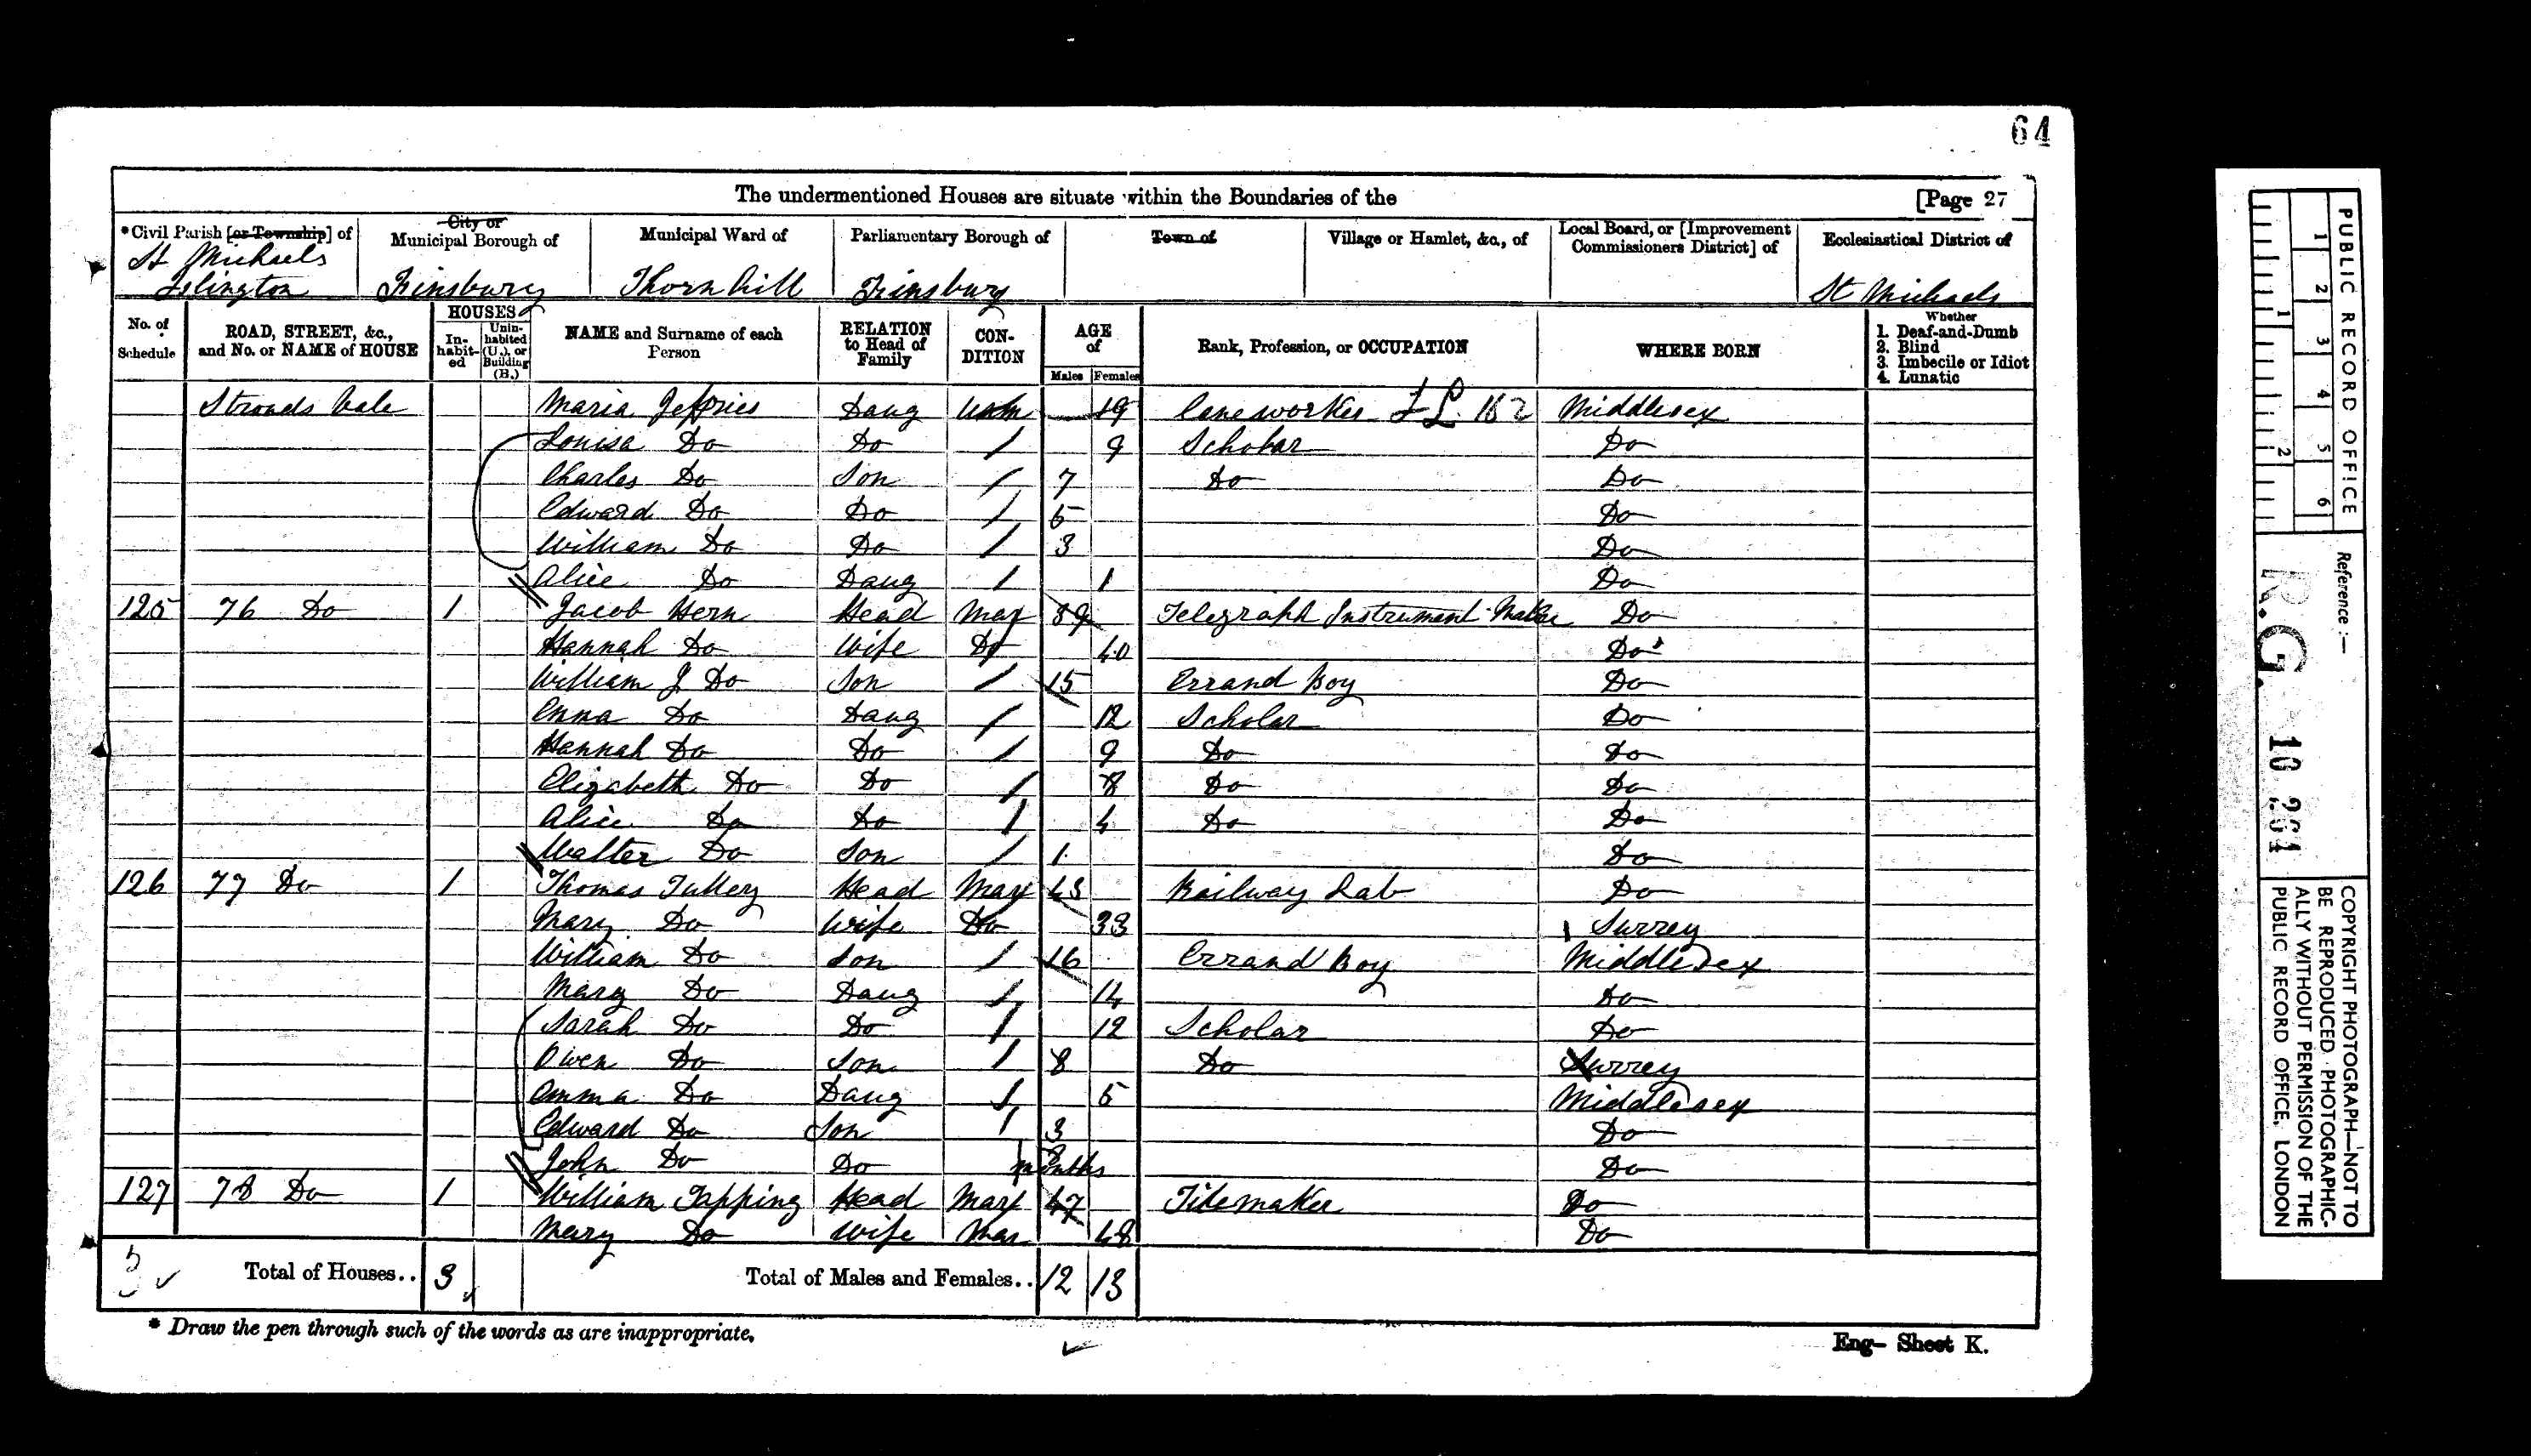 64
The undermentioned Houses are situate within the Boundaries of the [Page 27
*Civil Parish [or Township] of St Michaels Islington
City or Municipal Borough of Finsbury
Municipal Ward of Thornhill
Parliamentary Borough of Finsbury
Town of
Village or Hamlet, &c., of
Local Board, or [Improvement Commissioners District] of
Ecclesiastical District of St Michaels
No. of Schedule
ROAD, STREET, &c., and No. or NAME of HOUSE
HOUSES
In-habit-ed
Unin-habited (U.), or Building (B.)
NAME and Surname of each Person
RELATION to Head of Family
CON-DITION
AGE of
Males Females
Rank, Profession, or OCCUPATION
WHERE BORN
Whether
1. Deaf-and-Dumb
2. Blind
3. Imbecile or Idiot
4. Lunatic
Strouds Vale Maria Jeffries Daug Unm 19 Caneworker 182 Middlesex
Louisa Do Do 9 Scholar Do
Charles Do Son 7 Do Do
Edward Do Do 5 Do
William Do Do 3 Do
Alice Do Daug 1 Do
125 76 Do 1 Jacob Hern Head Mar 39 Telegraph Instrument Maker Do
Hannah Do Wife Do 40 Do
William J Do Son 15 Errand Boy Do
Emma Do Daug 12 Scholar Do
Hannah Do Do 9 Do Do
Elizabeth Do Do 8 Do Do
Alice Do Do 4 Do Do
Walter Do Son 1 Do
126 77 Do 1 Thomas Tullery Head Mar 43 Railway Lab Do
Mary Do Wife Do 33 Surrey
William Do Son 16 Errand Boy Middlesex
Mary Do Daug 14 Do
Sarah Do Do 12 Scholar Do
Owen Do Son 8 Do Surrey
Emma Do Daug 5 Middlesex
Edward Do Son 3 Do
John Do Do months Do
127 78 Do 1 William Tapping Head Mar 47 Tilemaker Do
Mary Do Wife Mar 48 Do
3 Total of Houses.. 3 Total of Males and Females.. 12 13
* Draw the pen through such of the words as are inappropriate.
Eng— Sheet K.
PUBLIC RECORD OFFICE
1 2 3 4 5 6
1 2
Reference :—
R.G. 10 264
COPYRIGHT PHOTOGRAPH—NOT TO
BE REPRODUCED PHOTOGRAPHIC-
ALLY WITHOUT PERMISSION OF THE
PUBLIC RECORD OFFICE, LONDON